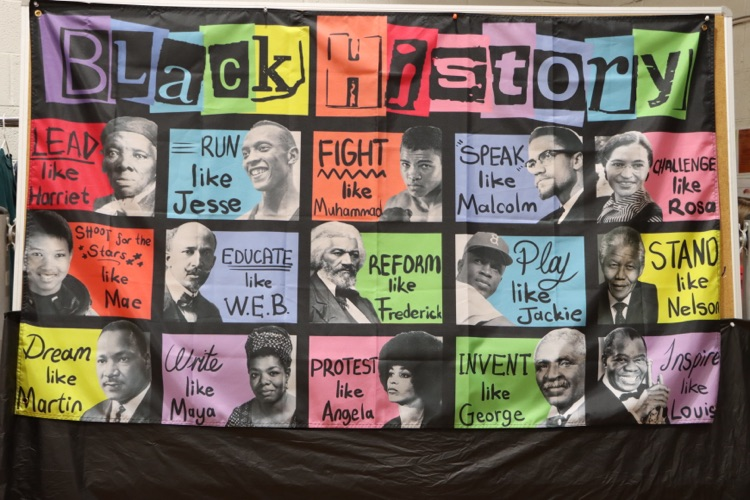 Black History
LEAD
like
Harriet
RUN
like
Jesse
FIGHT
like
Muhammad
"SPEAK"
like
Malcolm
CHALLENGE
like
Rosa
SHOOT for the
Stars
like
Mae
EDUCATE
like
W.E.B.
REFORM
like
Frederick
Play
like
Jackie
STAND
like
Nelson
Dream
like
Martin
Write
like
Maya
PROTEST
like
Angela
INVENT
like
George
Inspire
like
Louis